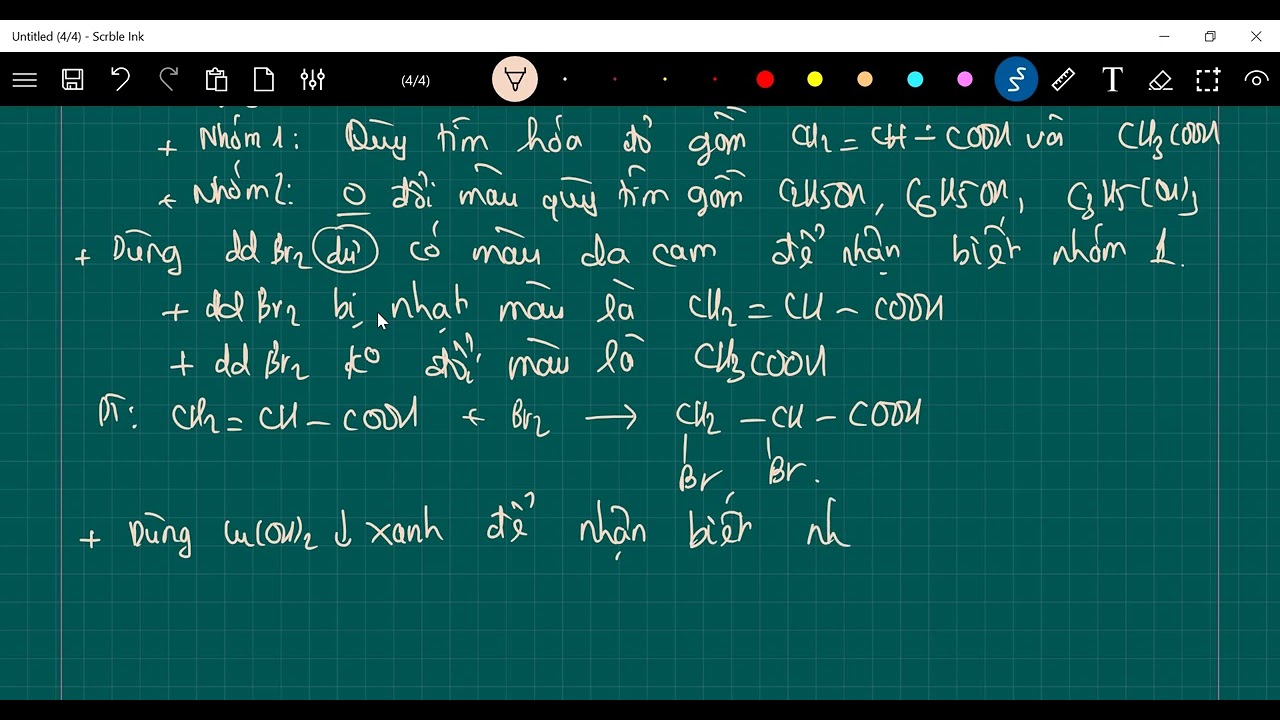 Untitled (4/4) - Scrble Ink
(4/4)
T
+ Nhóm 1: Qùy tím hóa đỏ gồm CH2 = CH - COOH và CH3COOH
+ Nhóm 2: 0 đổi màu qùy tím gồm C2H5OH, C6H5OH, C3H5(OH)3
+ Dùng dd Br2 (dư) có màu da cam để nhận biết nhóm 1.
+ dd Br2 bị nhạt màu là CH2 = CH - COOH
+ dd Br2 ko đổi màu là CH3COOH
PT: CH2 = CH - COOH + Br2 → CH2 - CH - COOH
Br Br.
+ Dùng Cu(OH)2 ↓ xanh để nhận biết nh